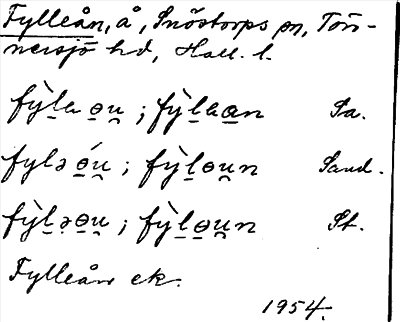 Fylleån, å, Snöstorps sn, Tön-
nersjö hd, Hall. l.
fỳl̠a o̠u̯ ; fỳl̠aa̠n Sa.
fylə ó̠u̯ ; fỳl̠ou̯n Sand.
fỳl̠ə̣o̠u̯ ; fỳl̠o̠u̯n St.
Fylleån ek.
1954.